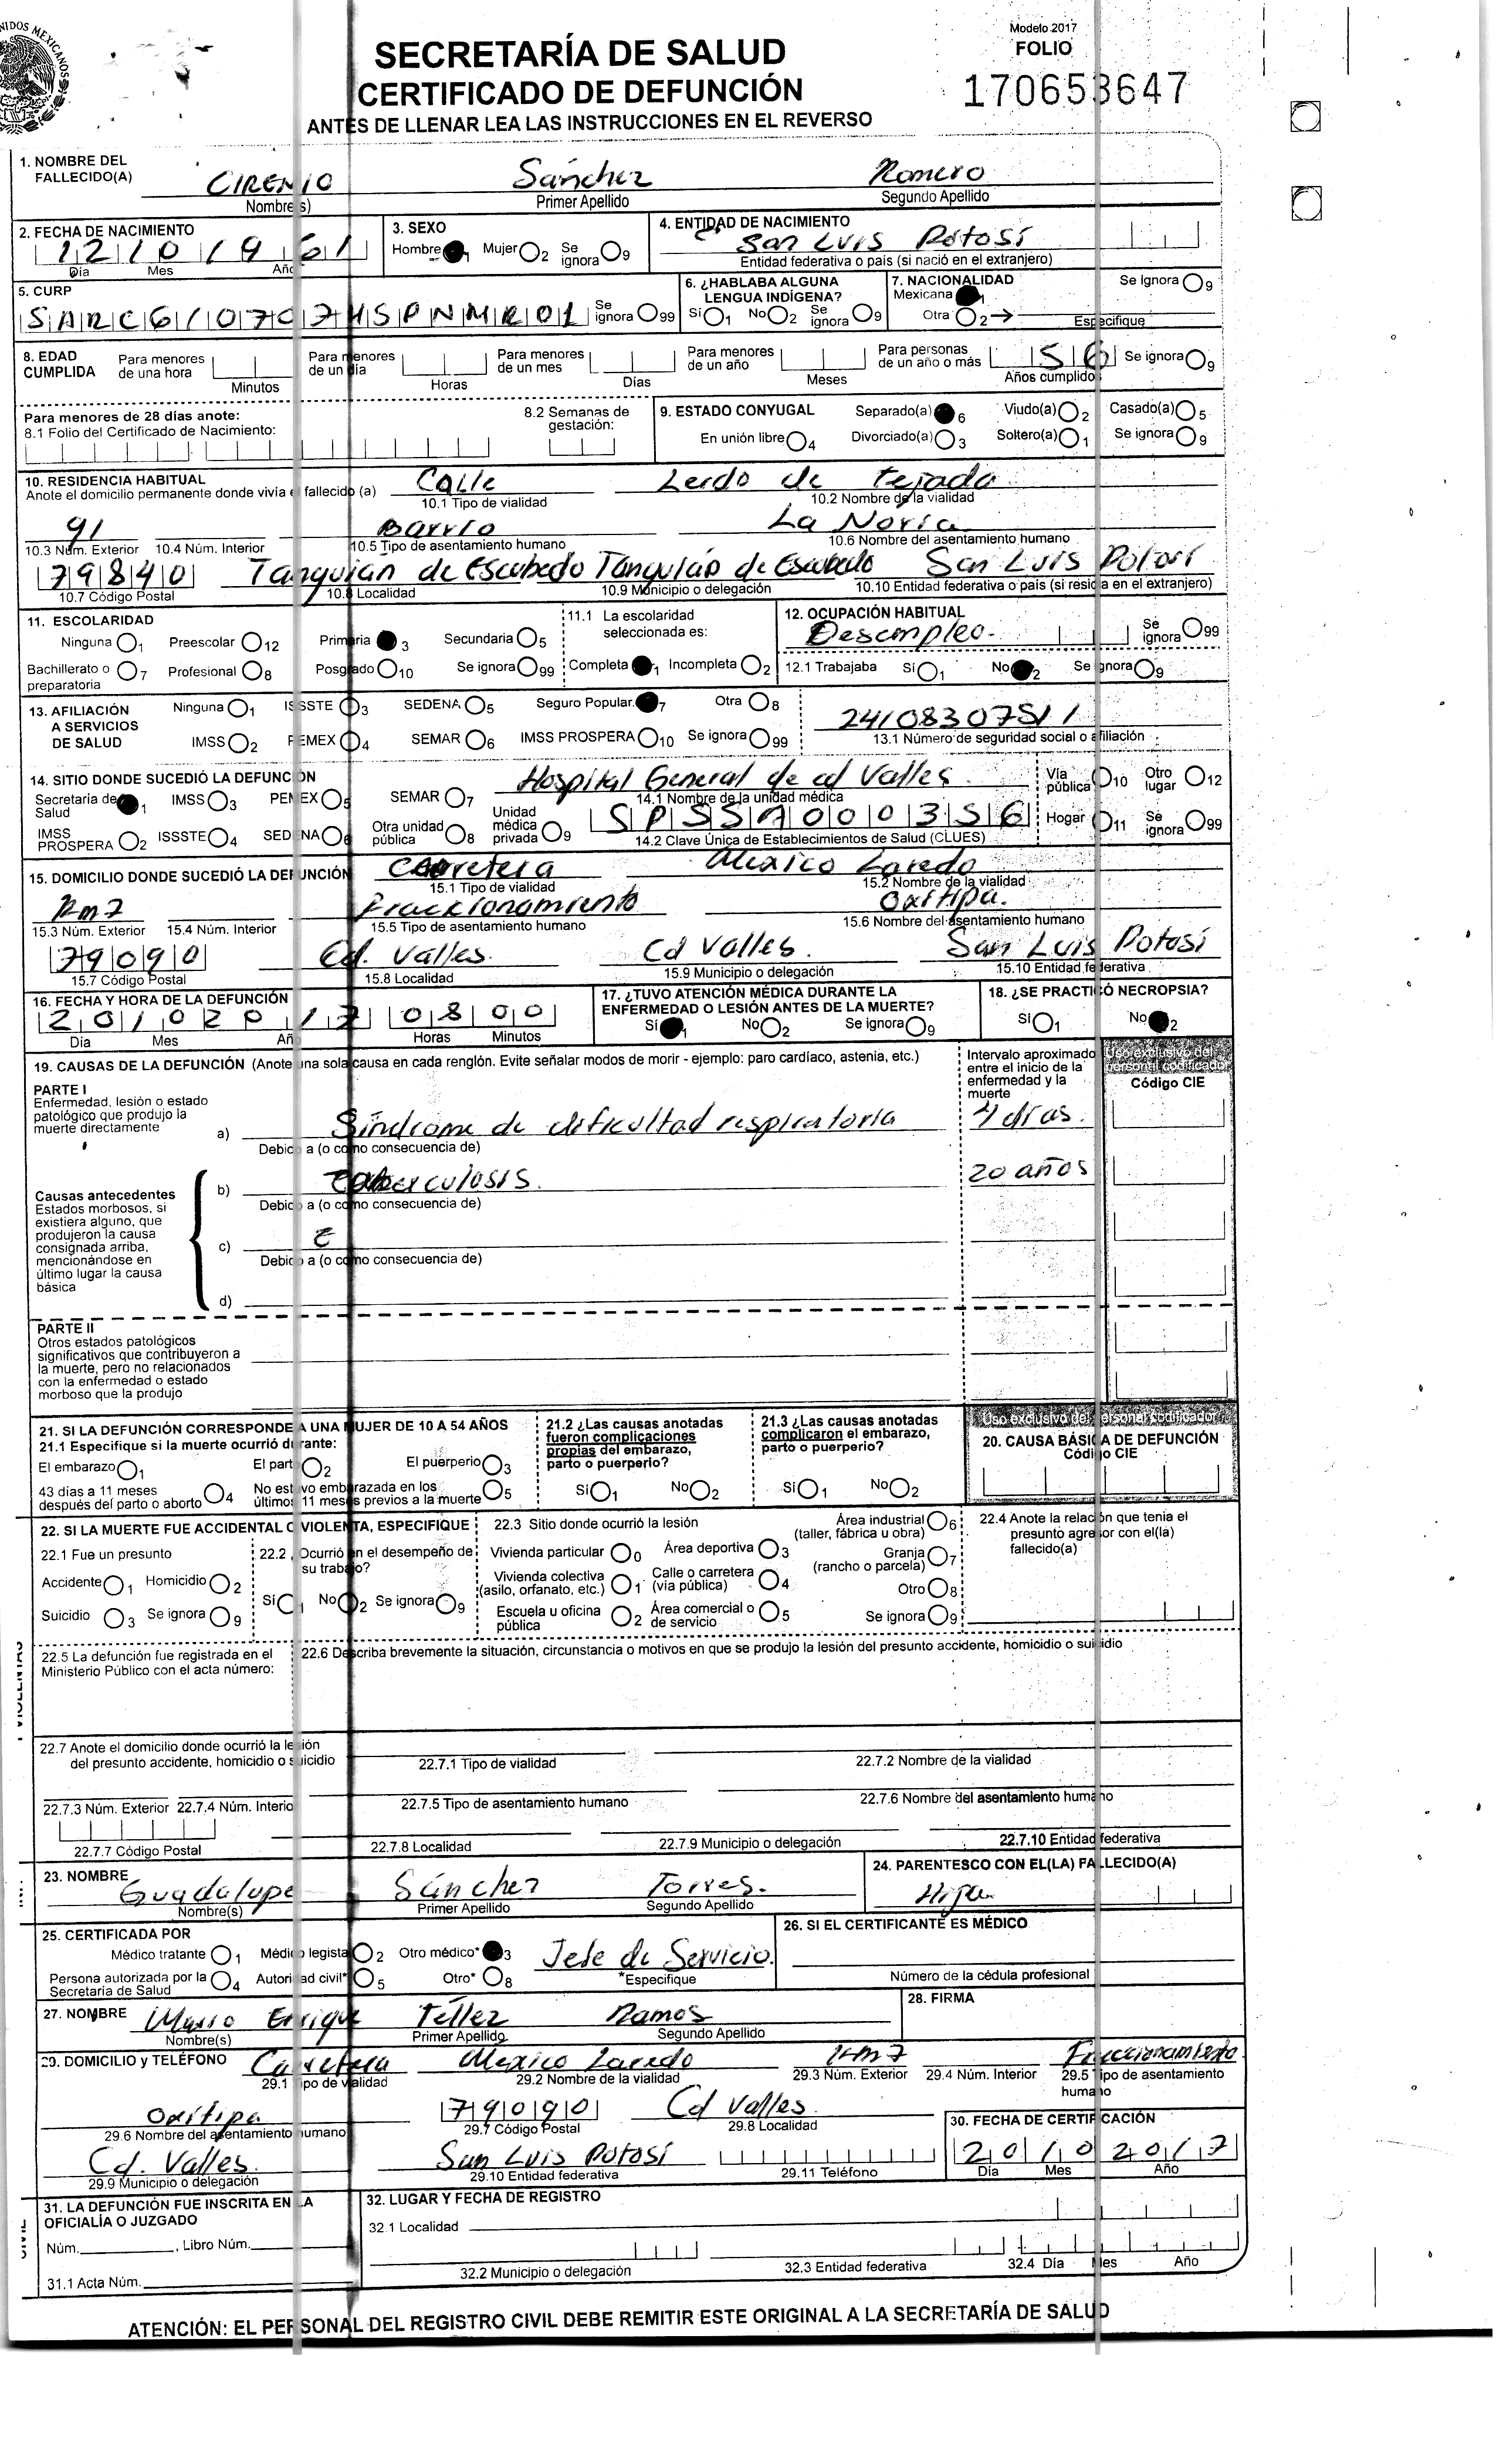 NIDOS MEXICANOS
Modelo 2017
SECRETARÍA DE SALUD
FOLIO
CERTIFICADO DE DEFUNCIÓN
170653647
ANTES DE LLENAR LEA LAS INSTRUCCIONES EN EL REVERSO
1. NOMBRE DEL FALLECIDO(A) CIRENIO Sánchez Romero
Nombre(s) Primer Apellido Segundo Apellido
2. FECHA DE NACIMIENTO 12/10/1961
Día Mes Año
3. SEXO
Hombre 1 Mujer 2 Se ignora 9
4. ENTIDAD DE NACIMIENTO
San Luis Potosí
Entidad federativa o país (si nació en el extranjero)
5. CURP
Se ignora 99
6. ¿HABLABA ALGUNA LENGUA INDÍGENA?
Sí 1 No 2 Se ignora 9
7. NACIONALIDAD Se ignora 9
Mexicana 1
Otra 2 → Especifique
8. EDAD CUMPLIDA Para menores de una hora Minutos Para menores de un día Horas Para menores de un mes Días Para menores de un año Meses Para personas de un año o más 56 Años cumplidos Se ignora 9
Para menores de 28 días anote:
8.1 Folio del Certificado de Nacimiento:
8.2 Semanas de gestación:
9. ESTADO CONYUGAL Separado(a) 6 Viudo(a) 2 Casado(a) 5
En unión libre 4 Divorciado(a) 3 Soltero(a) 1 Se ignora 9
10. RESIDENCIA HABITUAL
Anote el domicilio permanente donde vivía el fallecido (a) Calle Lerdo de Tejada
10.1 Tipo de vialidad 10.2 Nombre de la vialidad
91 Barrio La Noria
10.3 Núm. Exterior 10.4 Núm. Interior 10.5 Tipo de asentamiento humano 10.6 Nombre del asentamiento humano
79840 Tanquián de Escobedo Tanquián de Escobedo San Luis Potosí
10.7 Código Postal 10.8 Localidad 10.9 Municipio o delegación 10.10 Entidad federativa o país (si residía en el extranjero)
11. ESCOLARIDAD
Ninguna 1 Preescolar 12 Primaria 3 Secundaria 5
Bachillerato o preparatoria 7 Profesional 8 Posgrado 10 Se ignora 99
11.1 La escolaridad seleccionada es:
Completa 1 Incompleta 2
12. OCUPACIÓN HABITUAL
Desempleo. Se ignora 99
12.1 Trabajaba Sí 1 No 2 Se ignora 9
13. AFILIACIÓN A SERVICIOS DE SALUD
Ninguna 1 ISSSTE 3 SEDENA 5 Seguro Popular 7 Otra 8
IMSS 2 PEMEX 4 SEMAR 6 IMSS PROSPERA 10 Se ignora 99
2410830751 1
13.1 Número de seguridad social o afiliación
14. SITIO DONDE SUCEDIÓ LA DEFUNCIÓN
Secretaría de Salud 1 IMSS 3 PEMEX 5 SEMAR 7
IMSS PROSPERA 2 ISSSTE 4 SEDENA 6 Otra unidad pública 8 Unidad médica privada 9
Hospital General de cd Valles
14.1 Nombre de la unidad médica
SPSSA000356
14.2 Clave Única de Establecimientos de Salud (CLUES)
Vía pública 10 Otro lugar 12
Hogar 11 Se ignora 99
15. DOMICILIO DONDE SUCEDIÓ LA DEFUNCIÓN Carretera Mexico Laredo
15.1 Tipo de vialidad 15.2 Nombre de la vialidad
Km7 Fraccionamiento Oxitipa.
15.3 Núm. Exterior 15.4 Núm. Interior 15.5 Tipo de asentamiento humano 15.6 Nombre del asentamiento humano
79090 Cd. Valles. Cd Valles. San Luis Potosí
15.7 Código Postal 15.8 Localidad 15.9 Municipio o delegación 15.10 Entidad federativa
16. FECHA Y HORA DE LA DEFUNCIÓN
20102017 0800
Día Mes Año Horas Minutos
17. ¿TUVO ATENCIÓN MÉDICA DURANTE LA ENFERMEDAD O LESIÓN ANTES DE LA MUERTE?
Sí 1 No 2 Se ignora 9
18. ¿SE PRACTICÓ NECROPSIA?
Sí 1 No 2
19. CAUSAS DE LA DEFUNCIÓN (Anote una sola causa en cada renglón. Evite señalar modos de morir - ejemplo: paro cardíaco, astenia, etc.)
Intervalo aproximado entre el inicio de la enfermedad y la muerte
Uso exclusivo del personal codificador
Código CIE
PARTE I
Enfermedad, lesión o estado patológico que produjo la muerte directamente
a) Síndrome de dificultad respiratoria 4 días.
Debido a (o como consecuencia de)
Causas antecedentes
Estados morbosos, si existiera alguno, que produjeron la causa consignada arriba, mencionándose en último lugar la causa básica
b) Tuberculosis. 20 años
Debido a (o como consecuencia de)
c)
Debido a (o como consecuencia de)
d)
PARTE II
Otros estados patológicos significativos que contribuyeron a la muerte, pero no relacionados con la enfermedad o estado morboso que la produjo
21. SI LA DEFUNCIÓN CORRESPONDE A UNA MUJER DE 10 A 54 AÑOS
21.1 Especifique si la muerte ocurrió durante:
El embarazo 1 El parto 2 El puerperio 3
43 días a 11 meses después del parto o aborto 4 No estuvo embarazada en los últimos 11 meses previos a la muerte 5
21.2 ¿Las causas anotadas fueron complicaciones propias del embarazo, parto o puerperio?
Sí 1 No 2
21.3 ¿Las causas anotadas complicaron el embarazo, parto o puerperio?
Sí 1 No 2
Uso exclusivo del personal codificador
20. CAUSA BÁSICA DE DEFUNCIÓN
Código CIE
22. SI LA MUERTE FUE ACCIDENTAL O VIOLENTA, ESPECIFIQUE
22.1 Fue un presunto
Accidente 1 Homicidio 2
Suicidio 3 Se ignora 9
22.2 Ocurrió en el desempeño de su trabajo?
Sí 1 No 2 Se ignora 9
22.3 Sitio donde ocurrió la lesión
Vivienda particular 0 Área deportiva 3
Vivienda colectiva (asilo, orfanato, etc.) 1 Calle o carretera (vía pública) 4
Escuela u oficina pública 2 Área comercial o de servicio 5
Área industrial (taller, fábrica u obra) 6
Granja (rancho o parcela) 7
Otro 8
Se ignora 9
22.4 Anote la relación que tenia el presunto agresor con el(la) fallecido(a)
22.5 La defunción fue registrada en el Ministerio Público con el acta número:
22.6 Describa brevemente la situación, circunstancia o motivos en que se produjo la lesión del presunto accidente, homicidio o suicidio
22.7 Anote el domicilio donde ocurrió la lesión del presunto accidente, homicidio o suicidio
22.7.1 Tipo de vialidad 22.7.2 Nombre de la vialidad
22.7.3 Núm. Exterior 22.7.4 Núm. Interio 22.7.5 Tipo de asentamiento humano 22.7.6 Nombre del asentamiento humano
22.7.7 Código Postal 22.7.8 Localidad 22.7.9 Municipio o delegación 22.7.10 Entidad federativa
23. NOMBRE Guadalupe Sánchez Torres.
Nombre(s) Primer Apellido Segundo Apellido
24. PARENTESCO CON EL(LA) FALLECIDO(A)
Hija
25. CERTIFICADA POR
Médico tratante 1 Médico legista 2 Otro médico* 3
Persona autorizada por la Secretaría de Salud 4 Autoridad civil* 5 Otro* 8
Jefe de Servicio.
*Especifique
26. SI EL CERTIFICANTE ES MÉDICO
Número de la cédula profesional
27. NOMBRE Mario Enrique Téllez Ramos
Nombre(s) Primer Apellido Segundo Apellido
28. FIRMA
29. DOMICILIO y TELÉFONO Carretera Mexico Laredo Km7 Fraccionamiento
29.1 Tipo de vialidad 29.2 Nombre de la vialidad 29.3 Núm. Exterior 29.4 Núm. Interior 29.5 Tipo de asentamiento humano
Oxitipa 79090 Cd Valles.
29.6 Nombre del asentamiento humano 29.7 Código Postal 29.8 Localidad
Cd. Valles. San Luis Potosí
29.9 Municipio o delegación 29.10 Entidad federativa 29.11 Teléfono
30. FECHA DE CERTIFICACIÓN
20102017
Día Mes Año
31. LA DEFUNCIÓN FUE INSCRITA EN LA OFICIALÍA O JUZGADO
Núm. , Libro Núm.
31.1 Acta Núm.
32. LUGAR Y FECHA DE REGISTRO
32.1 Localidad
32.2 Municipio o delegación 32.3 Entidad federativa 32.4 Día Mes Año
ATENCIÓN: EL PERSONAL DEL REGISTRO CIVIL DEBE REMITIR ESTE ORIGINAL A LA SECRETARÍA DE SALUD